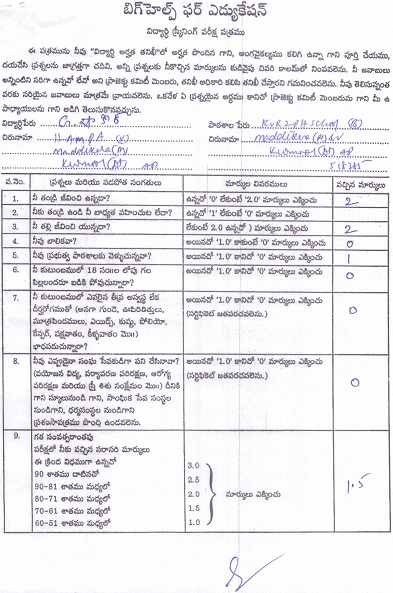 బిగ్‌హెల్ప్ ఫర్ ఎడ్యుకేషన్
విద్యార్థి స్క్రీనింగ్ పరీక్ష పత్రము
ఈ పత్రమును నీవు "విద్యార్థి అర్హత తనిఖీ"లో అర్హత పొందిన గాని, అంగవైకల్యము కలిగి ఉన్నా గాని పూర్తి చేయుము,
దయచేసి ప్రశ్నలను జాగ్రత్తగా చదివి, అన్ని ప్రశ్నలకు నీకొచ్చిన మార్కులను కుడివైపు చివరి కాలమ్‌లో నింపవలెను. నీ జవాబులు
అన్నింటిని సరిగా ఉన్నవో లేవో అని ప్రాజెక్టు కమిటీ మెంబరు, తనిఖీ అధికారి కలిసి తనిఖీ చేస్తారని గమనించవలెను. నీవు తెలిసినంత
వరకు సరియైన జవాబులు మాత్రమే వ్రాయవలెను. ఒకవేళ ఏ ప్రశ్నయైన అర్థము కానిచో ప్రాజెక్టు కమిటీ మెంబరును గాని మీ ఉ
పాధ్యాయులను గాని అడిగి తెలుసుకొనవచ్చును.
విద్యార్థిపేరు
పాఠశాల పేరు
చిరునామా HAMPA (V)
చిరునామా maddikera (M)
maddikera (M)
Kurnool (Dt) AP
Kurnool (Dt) AP
వ.నెం. ప్రశ్నలు మరియు సదరహిత సంగతులు మార్కుల వివరములు వచ్చిన మార్కులు
1. నీ తండ్రి జీవించి ఉన్నడా? ఉన్నచో '0' లేకుంటే '2.0' మార్కులు ఎక్కించు 2
2. నీకు తండ్రి ఉండి నీ బాధ్యత వహించుట లేదా? ఉన్నచో '1' లేకుంటే '0' మార్కులు ఎక్కించు
3. నీ తల్లి జీవించి యున్నదా? లేకుంటే 2.0 ఉన్నచో ) మార్కులు ఎక్కించు 2
4. నీవు బాలికవా? అయినచో '1.0' కాకుంటే '0' మార్కులు ఎక్కించు 0
5. నీవు ప్రభుత్వ పాఠశాలకు వెళ్ళుచున్నవా? అయినచో '1.0' కానిచో '0' మార్కులు ఎక్కించు 1
6. నీ కుటుంబములో 18 సం॥ల లోపు గల
పిల్లలందరూ బడికి పోవుచున్నారా? అయినచో '1.0' కానిచో '0' మార్కులు ఎక్కించు 0
7. నీ కుటుంబములో ఎవరైన తీవ్ర అస్వస్థత లేక
దీర్ఘరోగముతో (అనగా గుండె, ఊపిరితిత్తులు,
మూత్రపిండములు, ఎయిడ్స్, కుష్ఠు, పోలియో,
కేన్సర్, పక్షవాతం, కీళ్ళవాతం మొ॥)
భాధపడుచున్నారా?
అయినచో '1.0' కానిచో '0' మార్కులు ఎక్కించు
(సర్టిఫికెట్ జతపరచవలెను.)
0
8. నీవు ఎప్పుడైనా సంఘ సేవకుడిగా పని చేసినావా?
(వయోజన విద్య, పర్యావరణ పరిరక్షణ, ఆరోగ్య
పరిరక్షణ మరియు స్త్రీ శిశు సంక్షేమం మొ॥) దీనికి
గాని స్కూలునుండి గాని, సాంఘిక సేవ సంస్థల
నుండిగాని, ధర్మసంస్థల నుండిగాని
ప్రశంసాపత్రము పొంది ఉండవలెను.
అయినచో '1.0' కానిచో '0' మార్కులు ఎక్కించు
(సర్టిఫికెట్ జతపరచవలెను.)
0
9. గత సంవత్సరాంతపు
పరీక్షలో నీకు వచ్చిన సరాసరి మార్కులు
ఈ క్రింద విధముగా ఉన్నచో
90 శాతము దాటినచో 3.0
90-81 శాతము మధ్యలో 2.5
80-71 శాతము మధ్యలో 2.0
70-61 శాతము మధ్యలో 1.5
60-51 శాతము మధ్యలో 1.0
మార్కులు ఎక్కించు
1.5